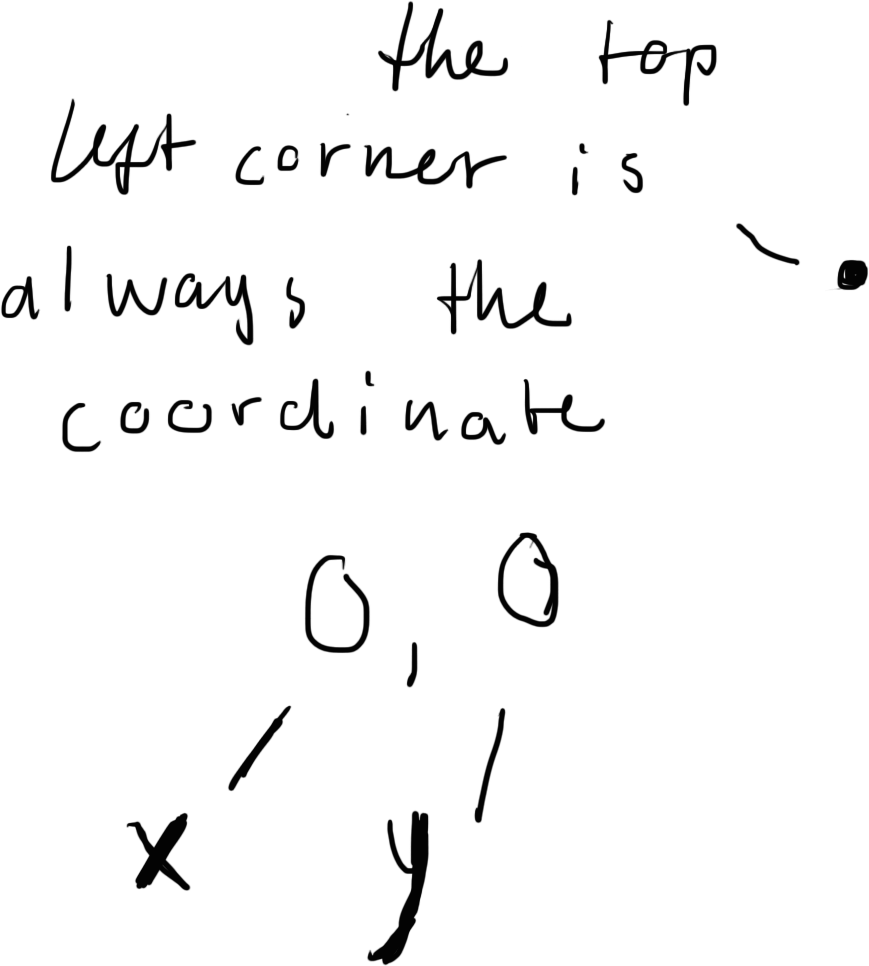 the top
left corner is
always the
coordinate
0, 0
x y